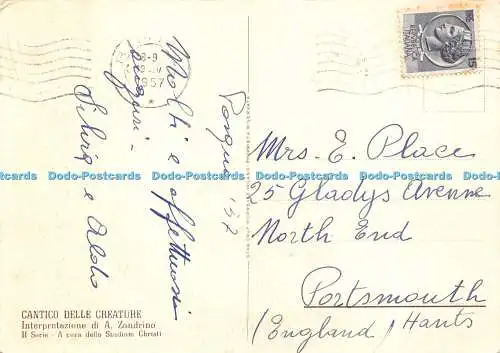 Pasqua '57
Molti e affettuosi
auguri -
Silvia e Aldo
Mrs. E. Place
25 Gladys Avenue
North End
Portsmouth
(England) Hants
CANTICO DELLE CREATURE
Interpretazione di A. Zandrino
II Serie - A cura dello Studium Christi
1957
15
Dodo-Postcards Dodo-Postcards Dodo-Postcards Dodo-Postcards Dodo-Postcards